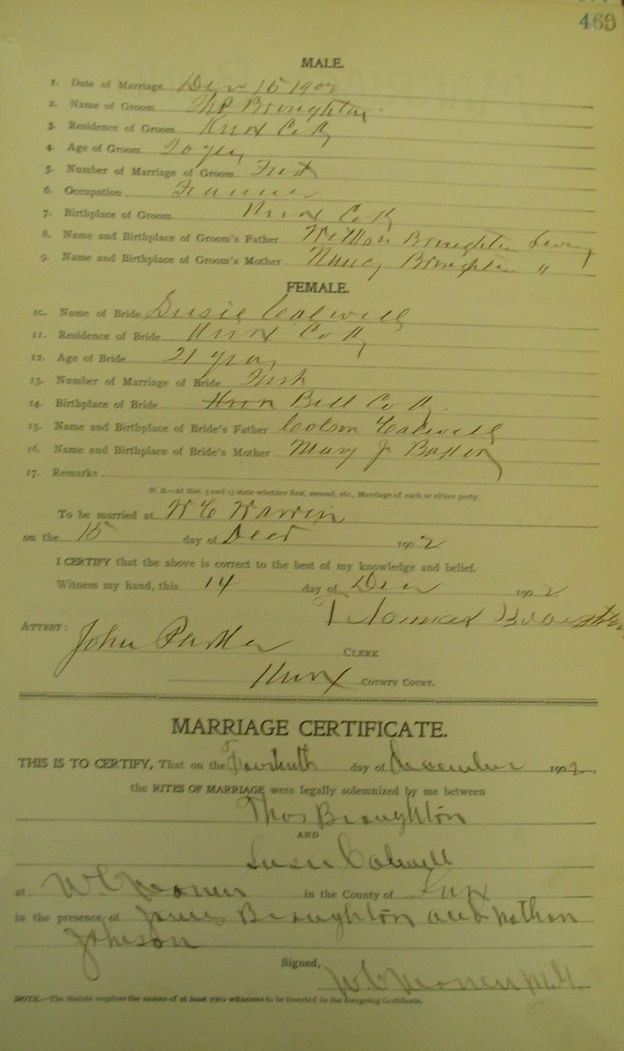 469
MALE.
1. Date of Marriage Dec 15 1902
2. Name of Groom Tho Broughton
3. Residence of Groom Knox Co Ky
4. Age of Groom 20 yrs
5. Number of Marriage of Groom First
6. Occupation Farmer
7. Birthplace of Groom Knox Co Ky
8. Name and Birthplace of Groom's Father Broughton
9. Name and Birthplace of Groom's Mother Nancy Broughton "
FEMALE.
10. Name of Bride Susie Colwell
11. Residence of Bride Knox Co Ky
12. Age of Bride 21 years
13. Number of Marriage of Bride First
14. Birthplace of Bride Bell Co Ky
15. Name and Birthplace of Bride's Father Colson Colwell
16. Name and Birthplace of Bride's Mother Mary J
17. Remarks
N. B.—At Nos. 5 and 13 state whether first, second, etc., Marriage of each or either party.
To be married at W C
on the 15 day of Decr 1902
I CERTIFY that the above is correct to the best of my knowledge and belief.
Witness my hand, this 14 day of Dec 1902
Thomas Broughton
ATTEST: John Parker CLERK
Knox COUNTY COURT.
MARRIAGE CERTIFICATE.
THIS IS TO CERTIFY, That on the day of December 1902.
the RITES OF MARRIAGE were legally solemnized by me between
Thos Broughton
AND
Susie Colwell
at W C in the County of Knox
in the presence of James Broughton and Nathan
Johnson
Signed,
W C
NOTE.—The Statute requires the names of at least TWO witnesses to be inserted in the foregoing Certificate.